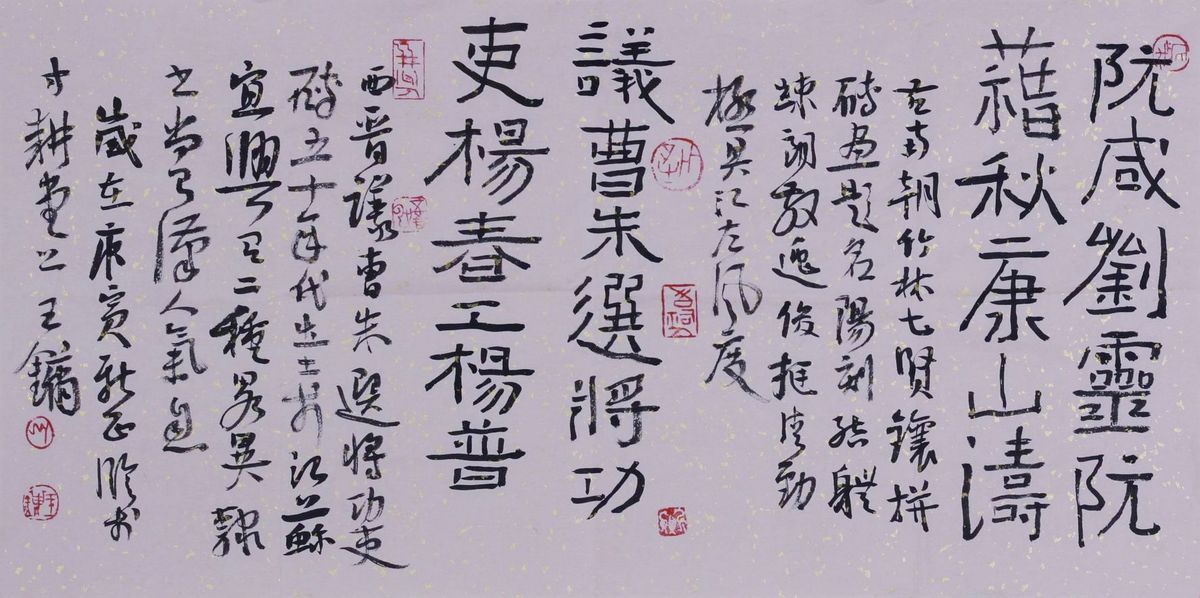 阮咸劉靈阮
藉秋康山濤
右南朝竹林七賢鑲拼
磚畫題名陽刻結體
竦朗散逸俊挺清勁
極具江左風度
議曹朱選將功
吏楊春工楊普
西晉議曹朱選將功吏
磚五十年代出土於江蘇
宜興有二種畧異隸
書尚有漢人氣息
歲在庚寅新正臨於
寸耕堂上王鏞